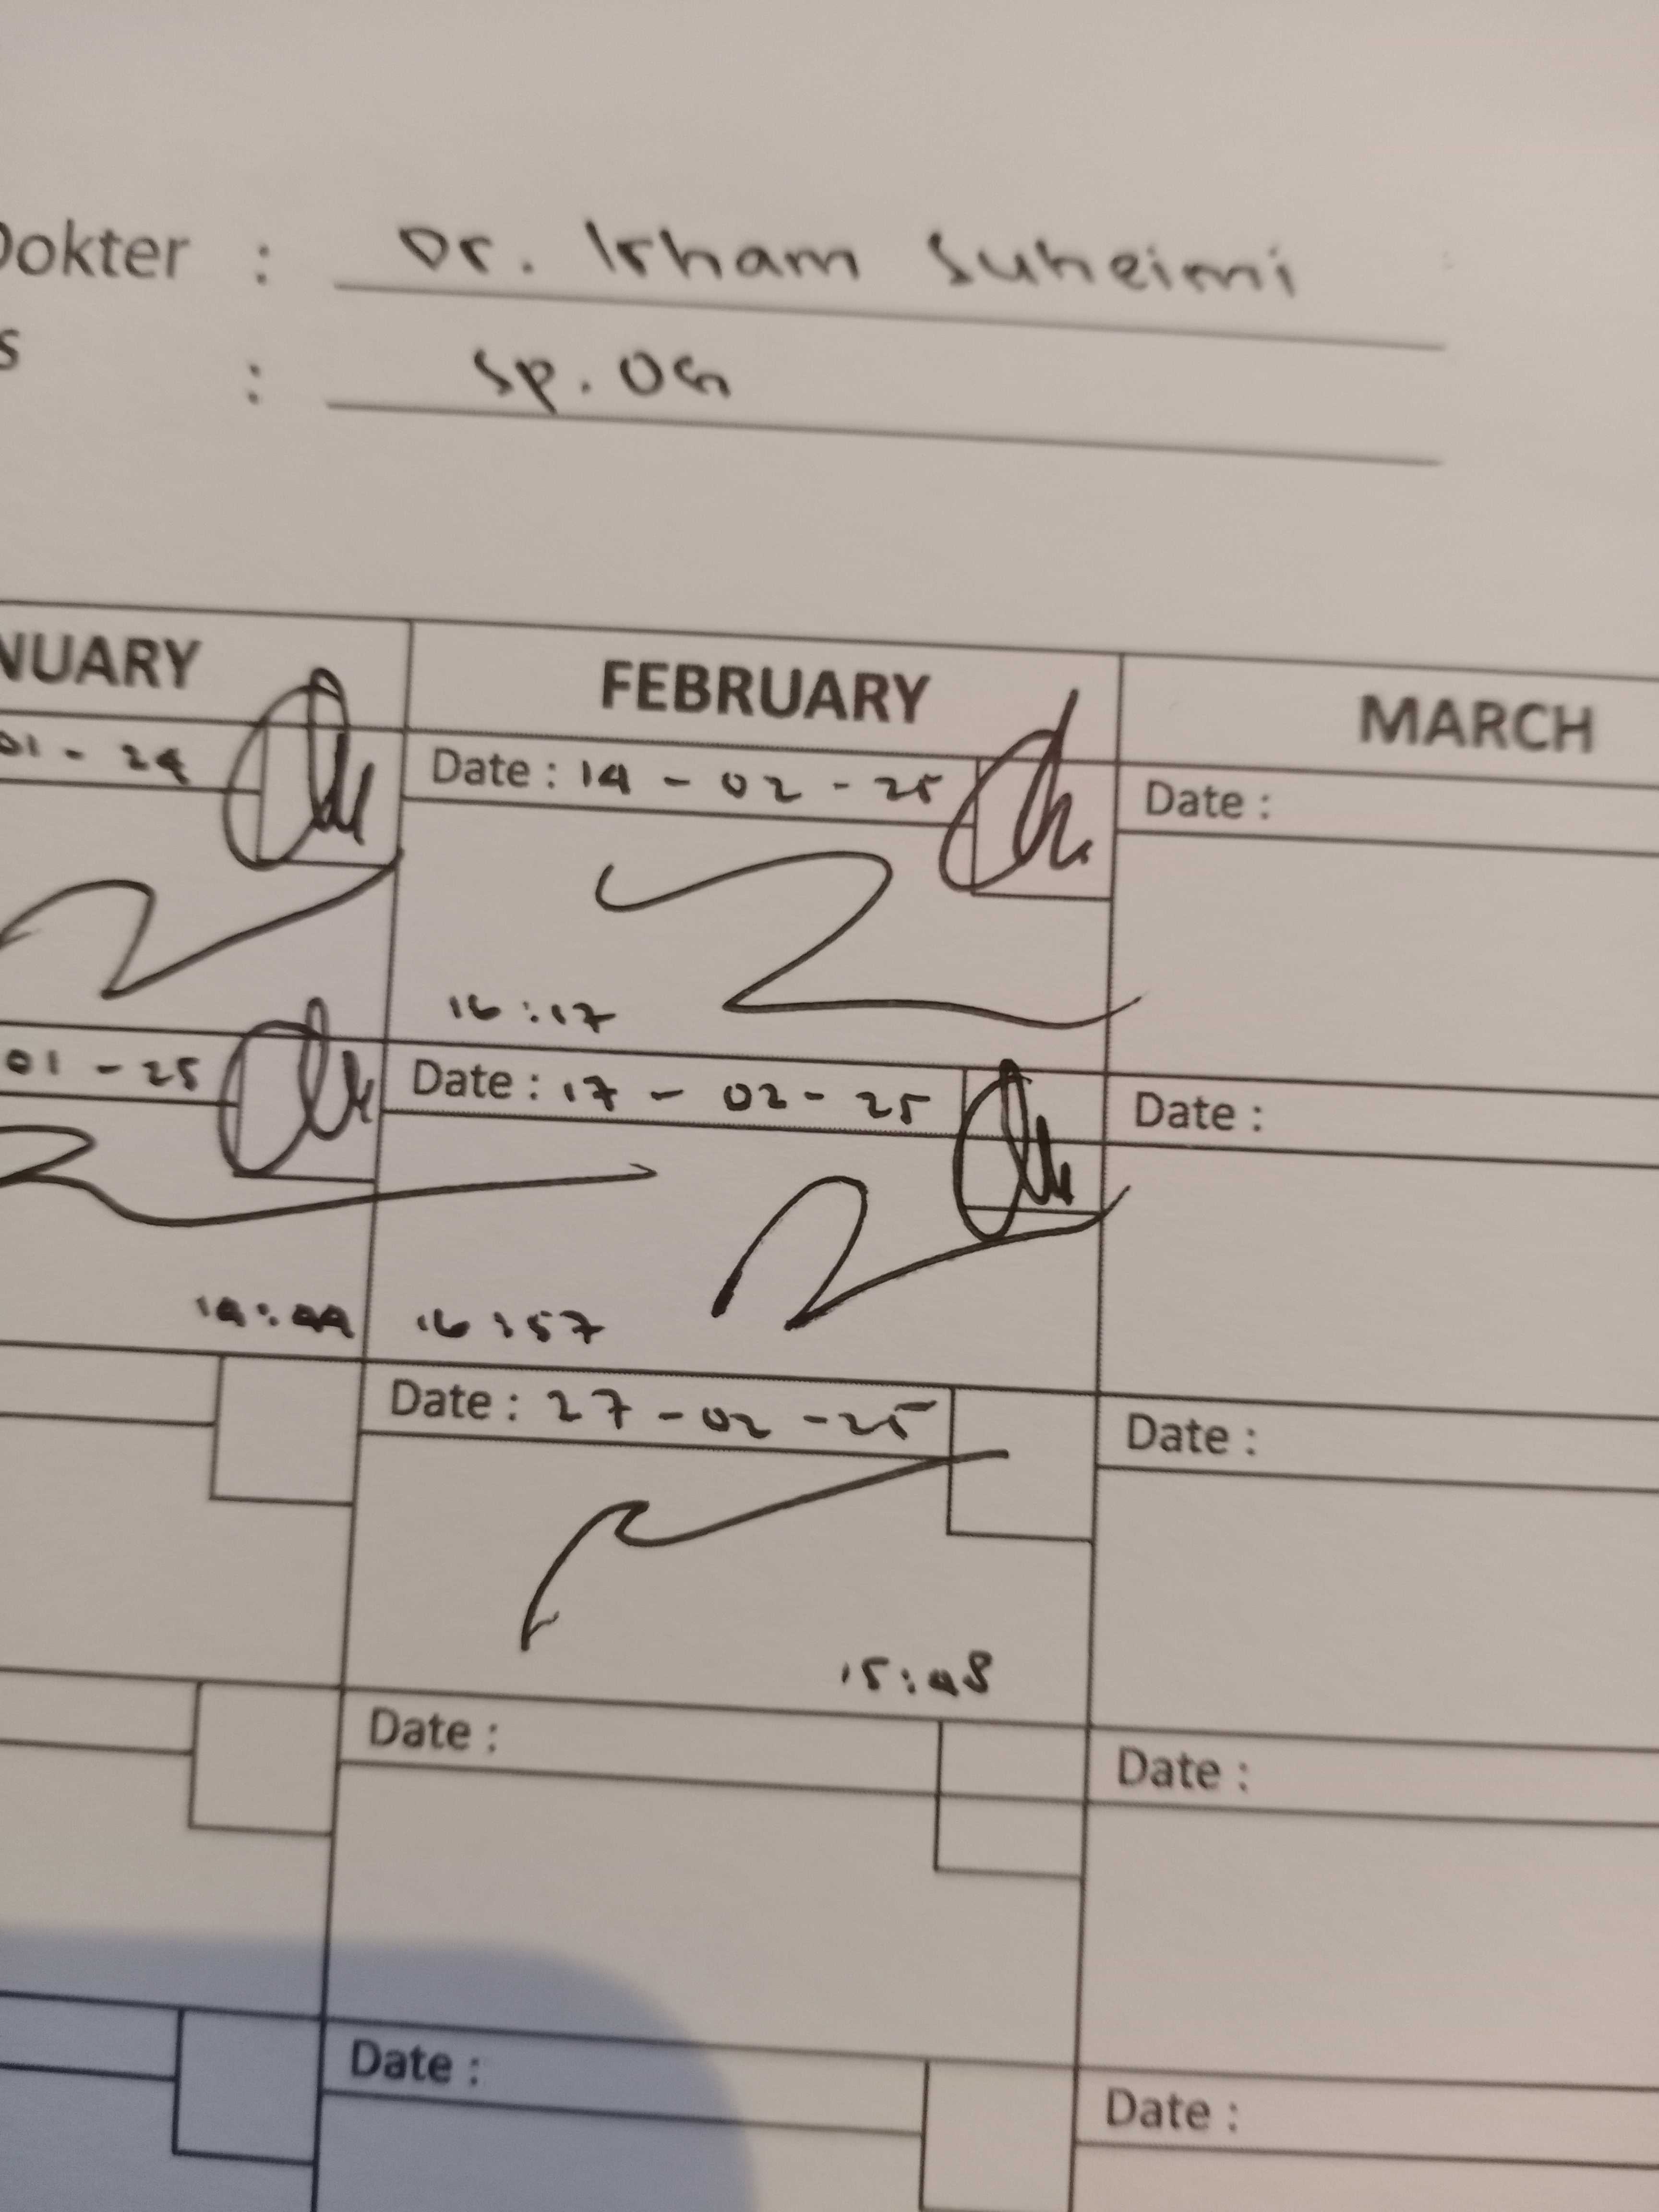 Dokter : Dr. Irham Suheimi
s : Sp. OG
NUARY FEBRUARY MARCH
01 - 24 Date : 14 - 02 - 25 Date :
16:17
01 - 25 Date : 17 - 02 - 25 Date :
14:44 16:57
Date : 27 - 02 - 25 Date :
15:48
Date : Date :
Date : Date :